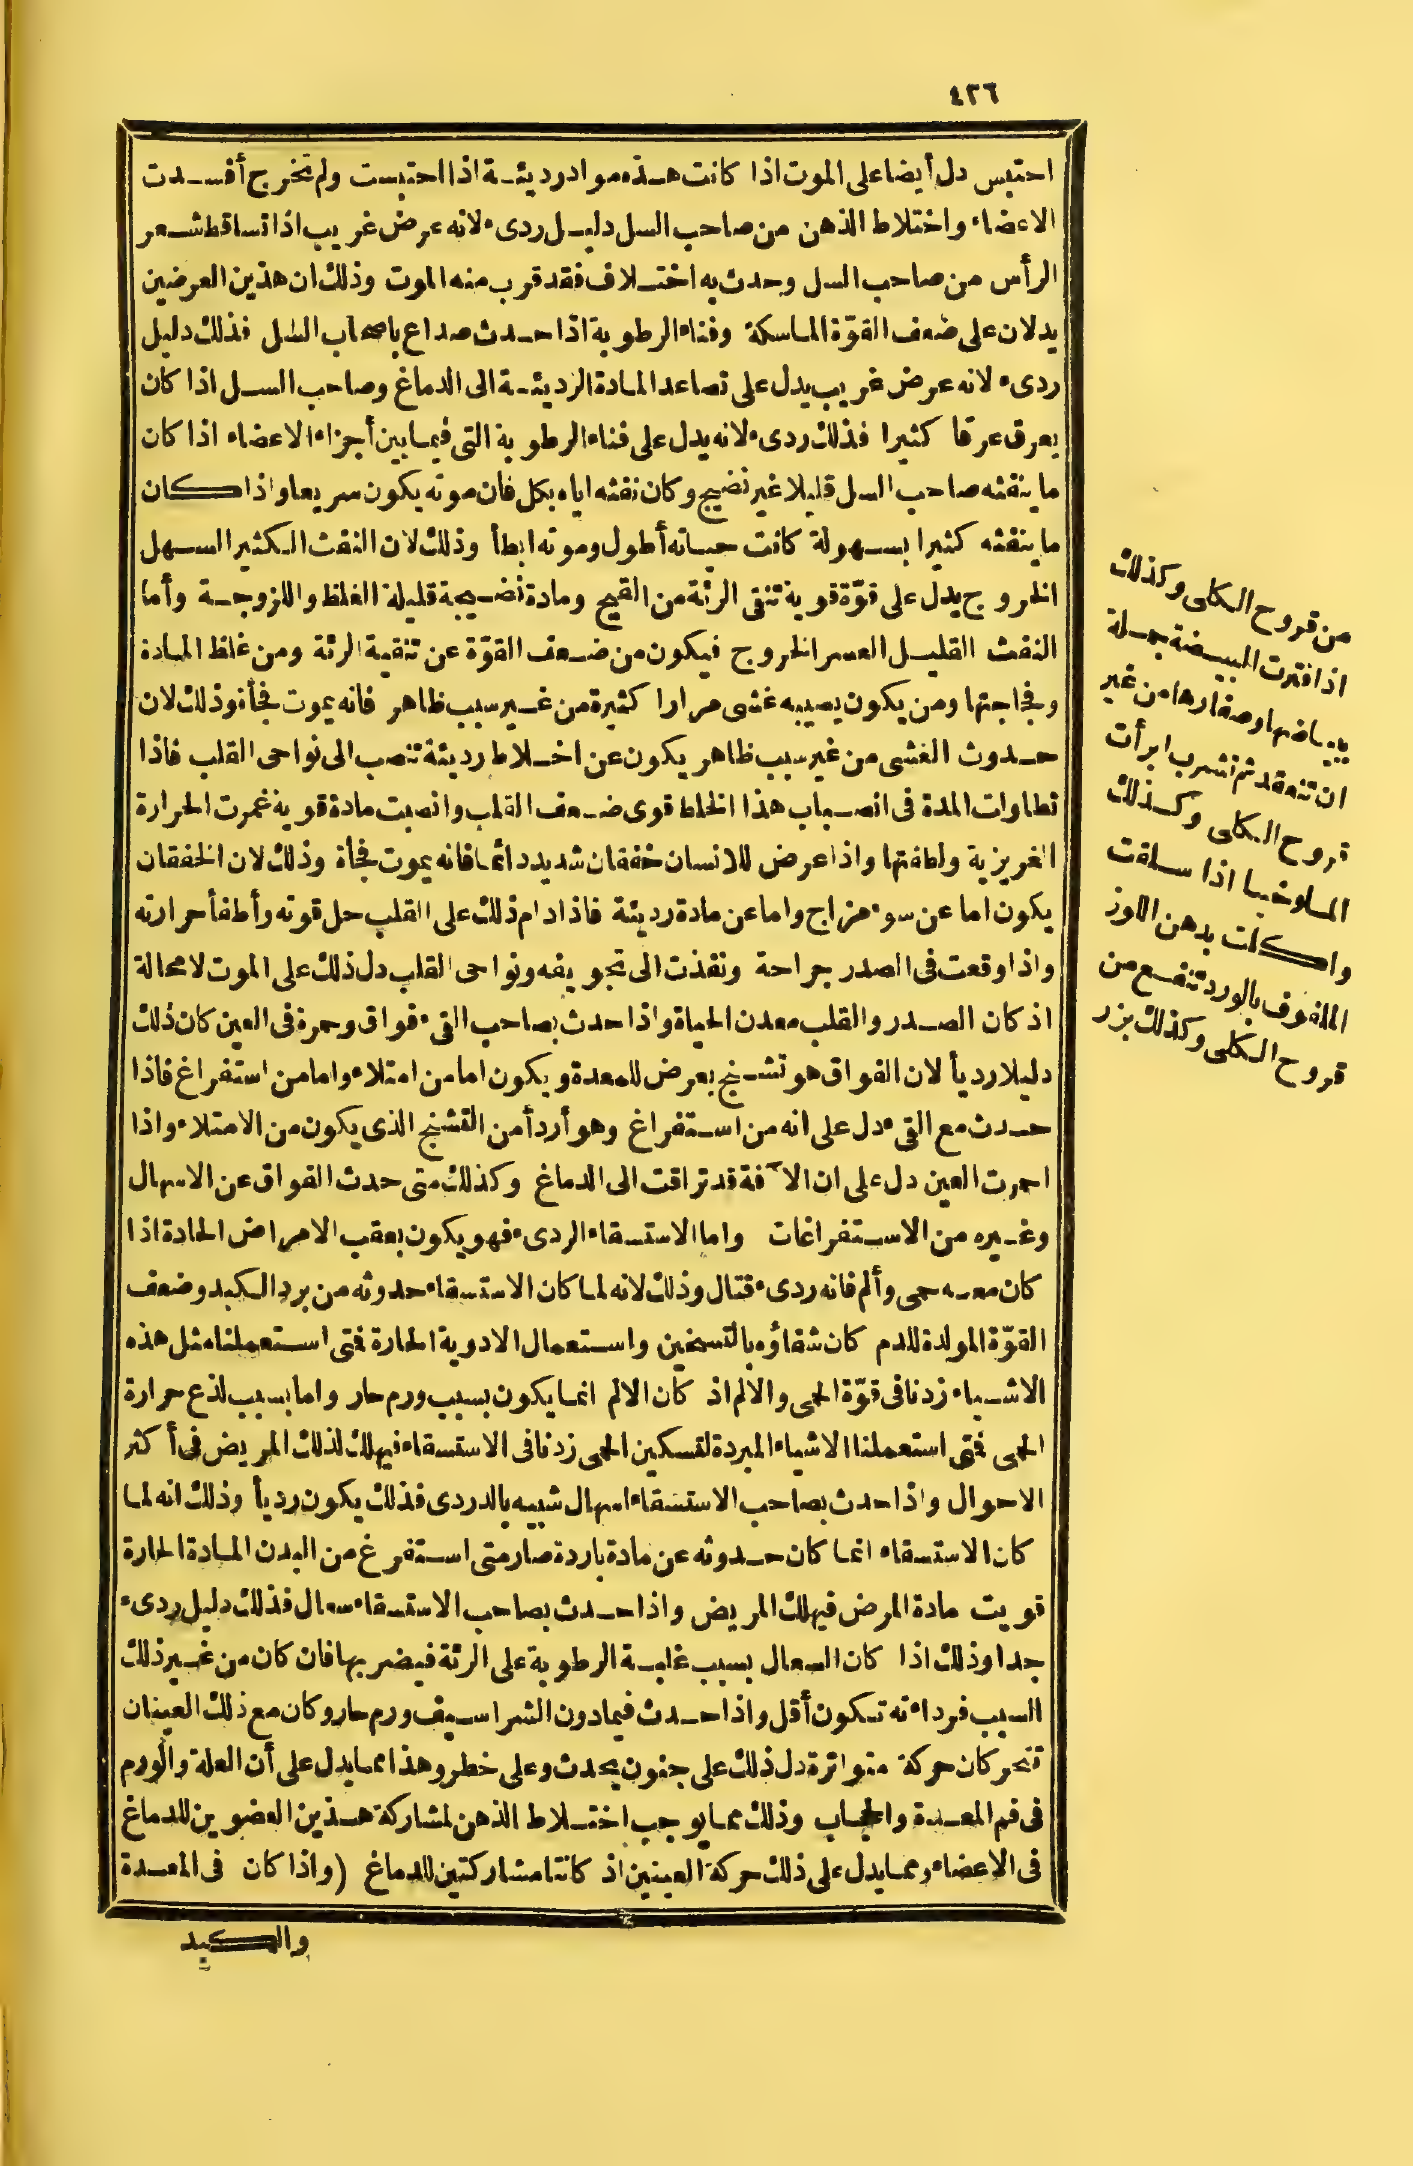 ٤٢٦
احتبس دل أيضا على الموت اذا كانت هذه مواد رديئة اذا احتبست ولم تخرج أفسدت
الاعضاء واختلاط الذهن من صاحب السل دليل ردىء لانه عرض غريب اذا تساقط شعر
الرأس من صاحب السل وحدث به اختلاف فقد قرب منه الموت وذلك ان هذين العرضين
يدلان على ضعف القوّة الماسكة وفناء الرطوبة اذا حدث صداع باصحاب السل فذلك دليل
ردىء لانه عرض غريب يدل على تصاعد المادة الرديئة الى الدماغ وصاحب السل اذا كان
يعرق عرقا كثيرا فذلك ردىء لانه يدل على فناء الرطوبة التى فيما بين أجزاء الاعضاء اذا كان
ما ينفثه صاحب السل قليلا غير نضيج وكان نفثه اياه بكل فان موته يكون سريعا واذا كان
ما ينفثه كثيرا بسهولة كانت حياته أطول وموته ابطأ وذلك لان النفث الكثير السهل
الخروج يدل على قوّة قوية تنقى الرئة من القيح ومادة نضيجة قليلة الغلظ واللزوجة وأما
النفث القليل العسر الخروج فيكون من ضعف القوّة عن تنقية الرئة ومن غلظ المادة
وفجاجتها ومن يكون يصيبه غشى مرارا كثيرة من غير سبب ظاهر فانه يموت فجأة وذلك لان
حدوث الغشى من غير سبب ظاهر يكون عن اخلاط رديئة تنصب الى نواحى القلب فاذا
تطاولت المدة فى انصباب هذا الخلط قوى ضعف القلب وانصبت مادة قوية غمرت الحرارة
الغريزية واطفتها واذا عرض للانسان خفقان شديد دائما فانه يموت فجأة وذلك لان الخفقان
يكون اما عن سوء مزاج واما عن مادة رديئة فاذا دام ذلك على القلب حل قوته وأطفأ حرارته
واذا وقعت فى الصدر جراحة ونفذت الى تجويفه ونواحى القلب دل ذلك على الموت لا محالة
اذ كان الصدر والقلب معدن الحياة واذا حدث بصاحب القىء فواق وحمرة فى العين كان ذلك
دليلا رديأ لان الفواق هو تشنج يعرض للمعدة ويكون اما من امتلاء واما من استفراغ فاذا
حدث مع القىء دل على انه من استفراغ وهو أردأ من التشنج الذى يكون من الامتلاء واذا
احمرت العين دل على ان الآفة قد تراقت الى الدماغ وكذلك متى حدث الفواق عن الاسهال
وغيره من الاستفراغات واما الاستسقاء الردىء فهو يكون بعقب الامراض الحادة اذا
كان معه حمى وألم فانه ردىء قتال وذلك لانه لما كان الاستسقاء حدوثه من برد الكبد وضعف
القوّة المولدة للدم كان شفاؤه بالتسخين واستعمال الادوية الحارة فمتى استعملنا مثل هذه
الاشياء زدنا فى قوّة الحمى والالم اذ كان الالم انما يكون بسبب ورم حار واما بسبب لذع حرارة
الحمى فمتى استعملنا الاشياء المبردة لتسكين الحمى زدنا فى الاستسقاء فيهلك لذلك المريض فى أكثر
الاحوال واذا حدث بصاحب الاستسقاء اسهال شبيه بالدردى فذلك يكون رديأ وذلك انه لما
كان الاستسقاء انما كان حدوثه عن مادة باردة صار متى استفرغ من البدن المادة الحارة
قويت مادة المرض فيهلك المريض واذا حدث بصاحب الاستسقاء سعال فذلك دليل ردىء
جدا وذلك اذا كان السعال بسبب غلبة الرطوبة على الرئة فيضر بها فان كان من غير ذلك
السبب فرداءته تكون أقل واذا حدث فيما دون الشراسيف ورم حار وكان مع ذلك العينان
تتحركان حركة متواترة دل ذلك على جنون يحدث وعلى خطر وهذا مما يدل على أن العلة والورم
فى فم المعدة والحجاب وذلك مما يوجب اختلاط الذهن لمشاركة هذين العضوين للدماغ
فى الاعضاء ومما يدل على ذلك حركة العينين اذ كانتا مشاركتين للدماغ (واذا كان فى المعدة
والكبد
من قروح الكلى وكذلك
اذا فترت البيضة جملة
بيياضها وصفارها من غير
ان تنعقد ثم تشرب ابرأت
قروح الكلى وكذلك
الملوخيا اذا سلقت
واكلت بدهن اللوز
الملفوف بالورد تنفع من
قروح الكلى وكذلك بزر